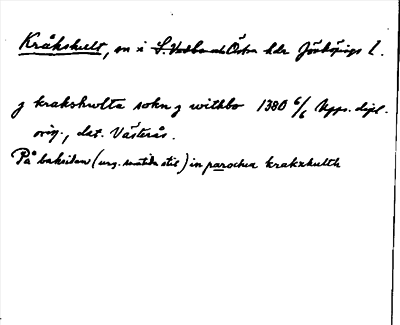 Kråkshult, sn i S. Vedbo och Östra hdr Jönköpings l.
j krakshwlta sokn j withbo 1380 6/6 Upps. dipl.
orig., dat. Västerås.
På baksidan (ung. samtida stil) in parochia krakxhulth